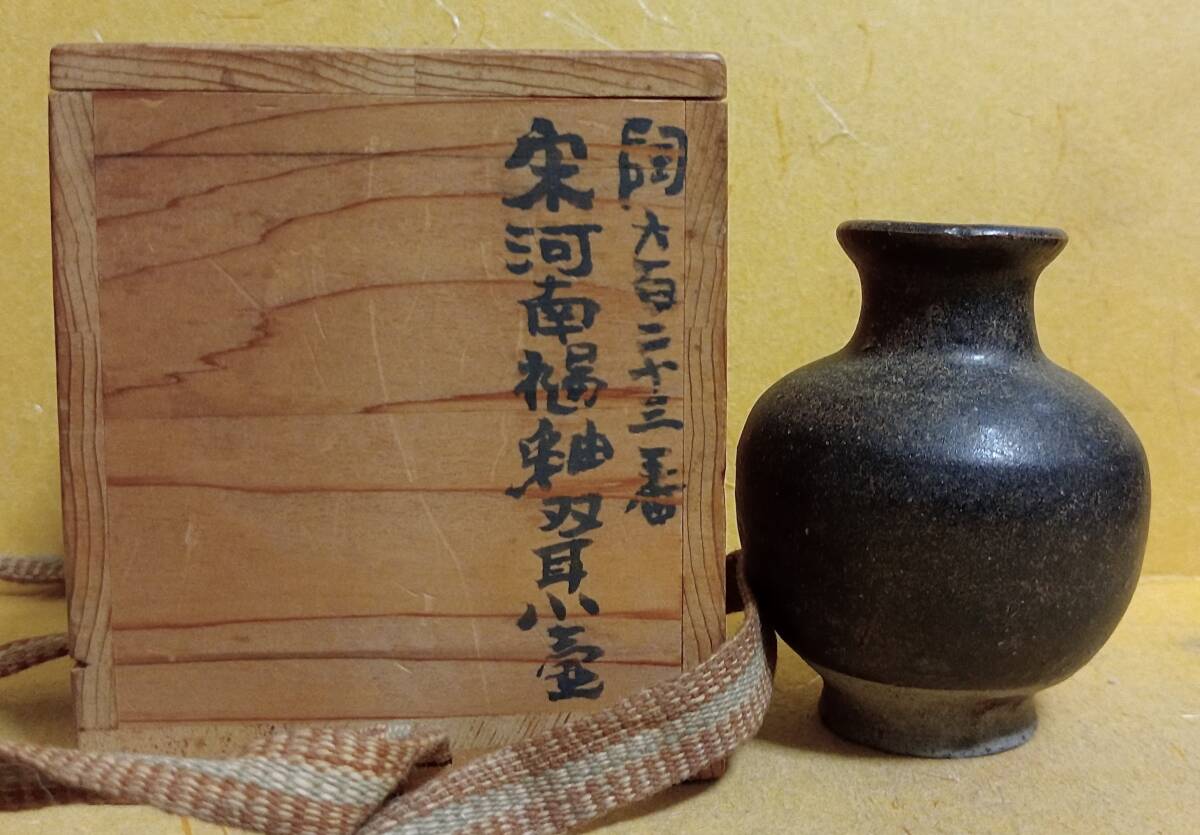 陶六百二十三番
宋河南褐釉双耳小壺